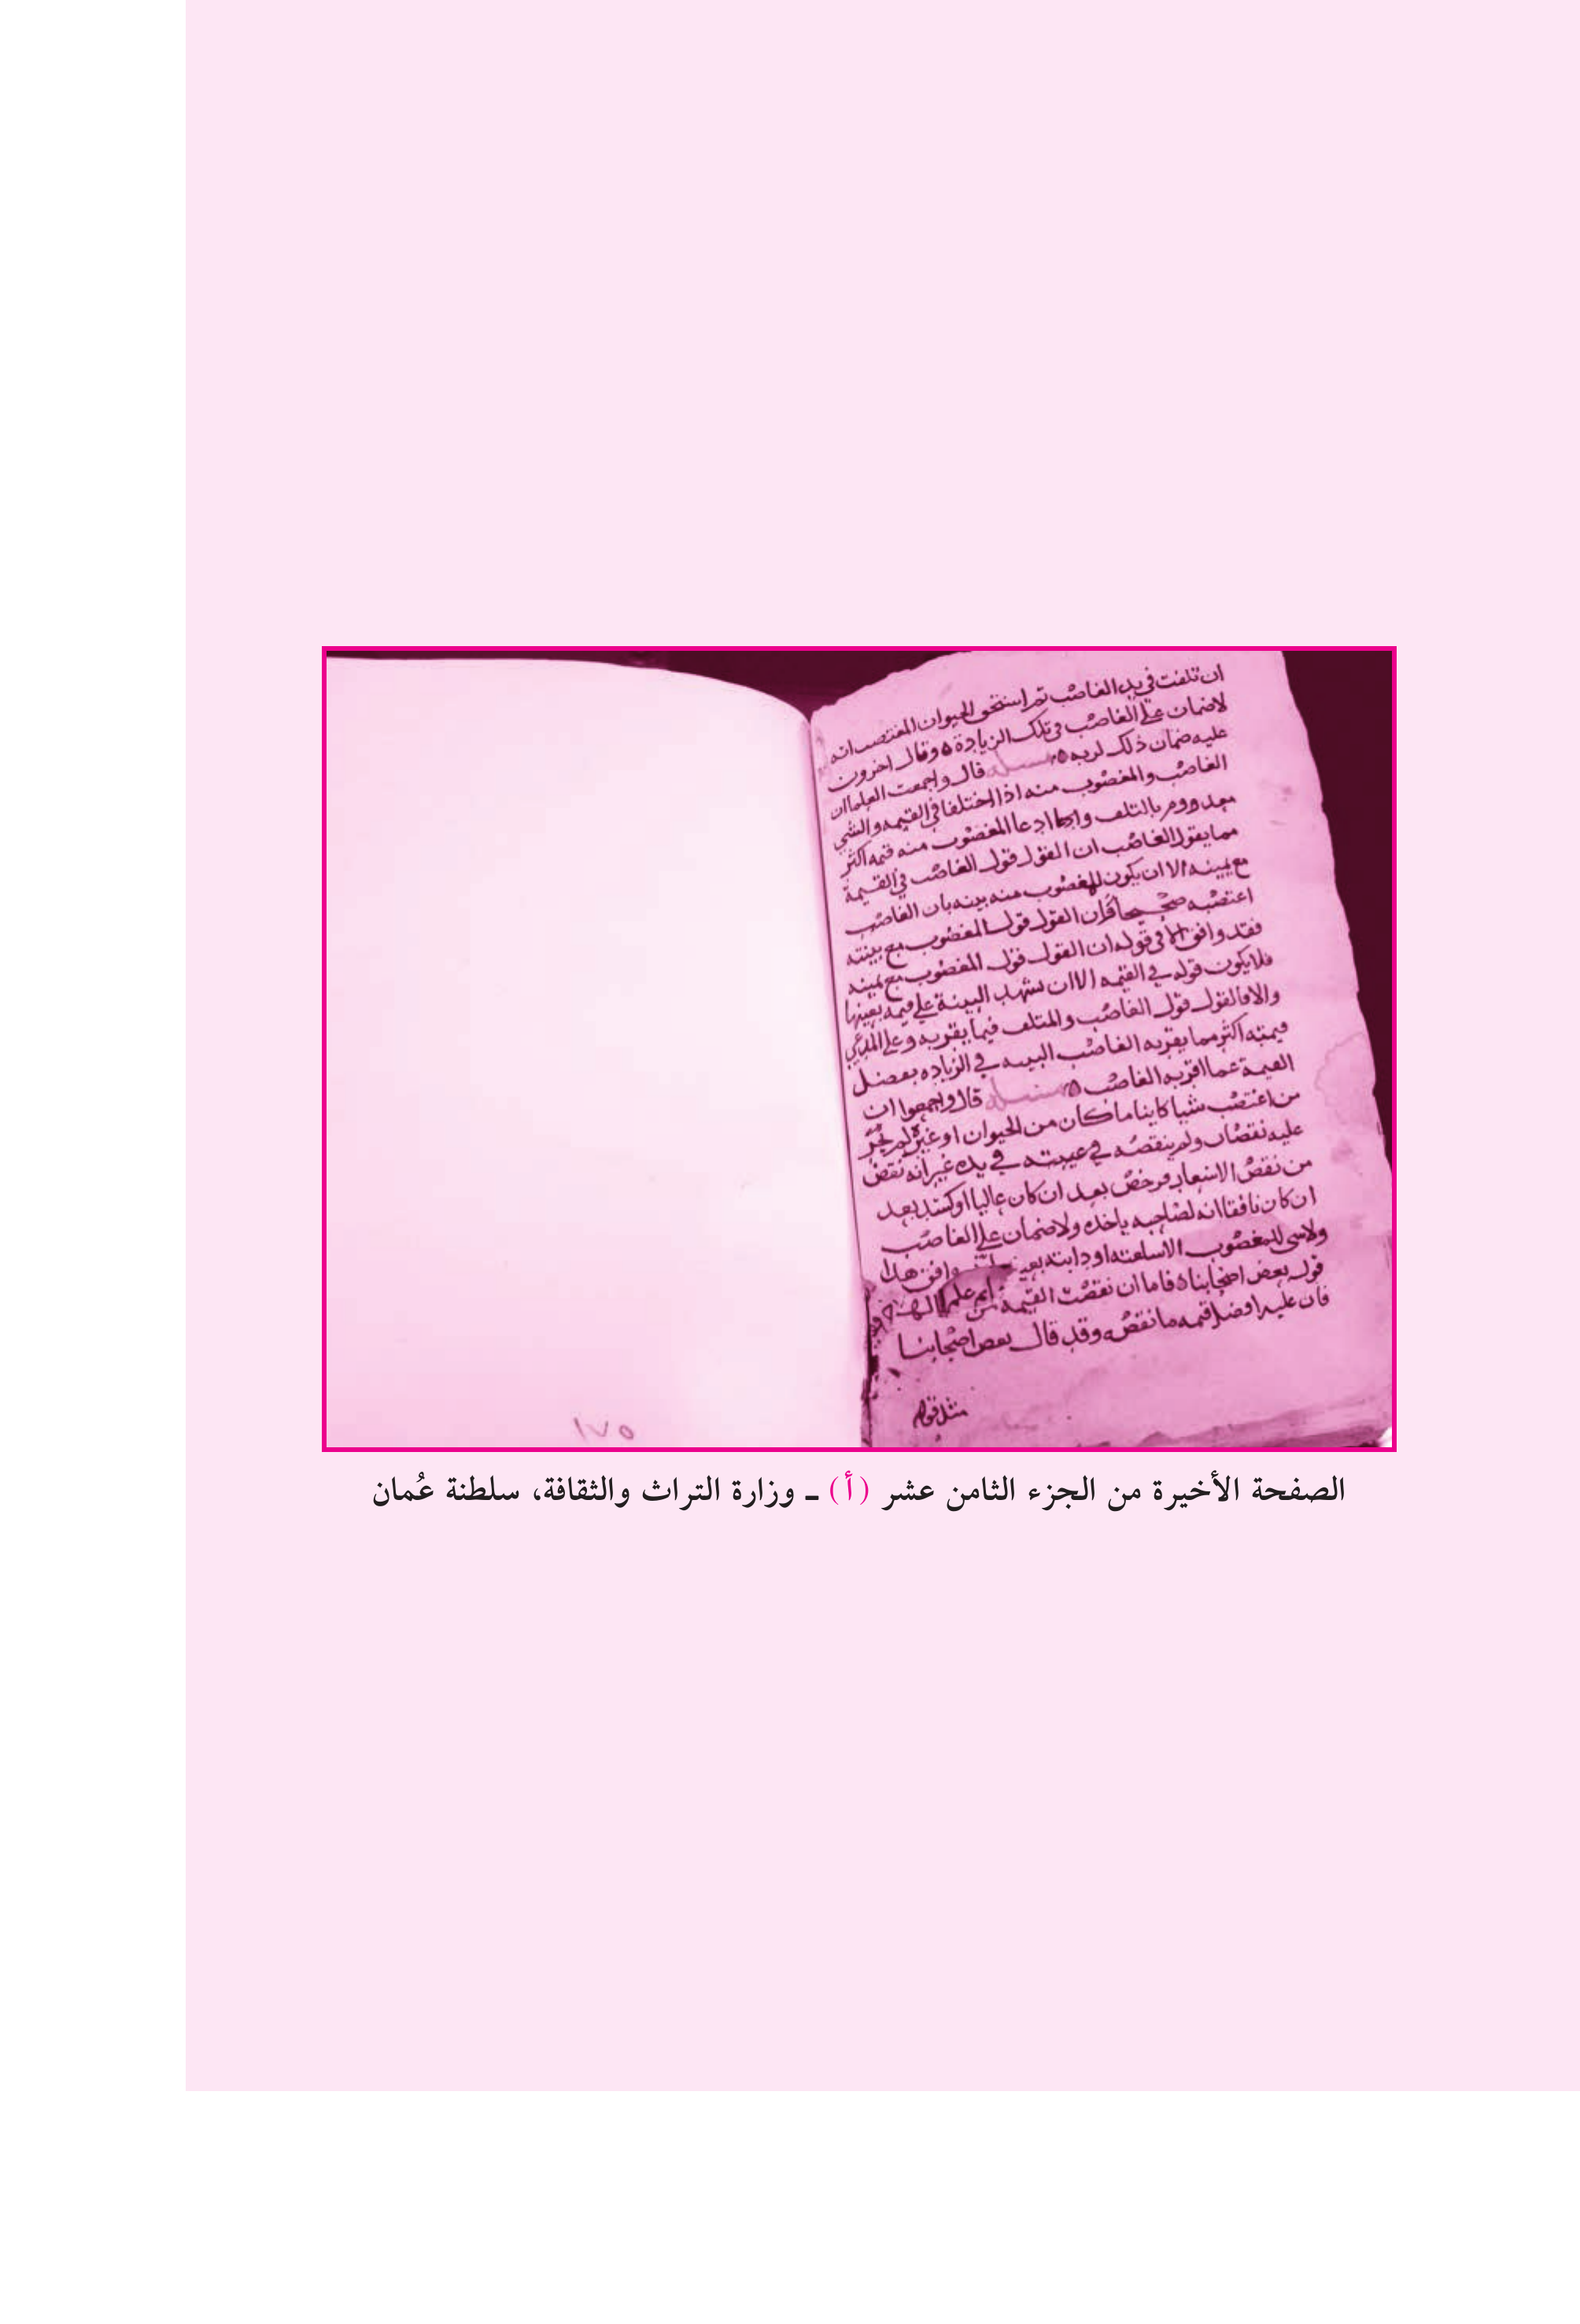 ان تلفت في يد الغاصب ثم استحق الحيوان المغتصب انه
لاضمان على الغاصب في تلك الزيادة ه وقال اخرون
عليه ضمان ذلك لربه ه مسله قال واجمعت العلما ان
الغاصب والمغصوب منه اذا اختلفا في القيمه والشي
معدووم بالتلف وادعا المغصوب منه قيمه اكثر
مما يقول الغاصب ان القول قول الغاصب في القيمة
مع يمينه الا ان يكون للمغصوب منه بينه بان الغاصب
اعتصبه صحيحا فان القول قول المغصوب مع بينته
فقد وافق في قوله ان القول قول المغصوب مع يمينه
فلا يكون قوله في القيمه الا ان تشهد البينة على قيمه بعينها
والا فالقول قول الغاصب والمتلف فيما يقر به وعلى المدعي
قيمته اكثر مما يقر به الغاصب البينه في الزياده بفضل
القيمة عما اقر به الغاصب ه مسله قال واجمعوا ان
من اغتصب شيا كاينا ما كان من الحيوان او غيره لم يجر
عليه نقصان ولم ينقصه في عينه في يده غير انه نقص
من نقص الاسعار فرخص بعد ان كان غاليا او كسد بعد
ان كان نافقا انه لصاحبه ياخذه ولاضمان على الغاصب
ولاشي للمغصوب الا سلعته او دابته وافق هذا
قول بعض اصحابنا ه فاما ان نقصت القيمه من
فان عليه افضل قيمه ما نقصه وقد قال بعض اصحابنا
مثل قولهم
١٧٥
الصفحة الأخيرة من الجزء الثامن عشر (أ) ـ وزارة التراث والثقافة، سلطنة عُمان